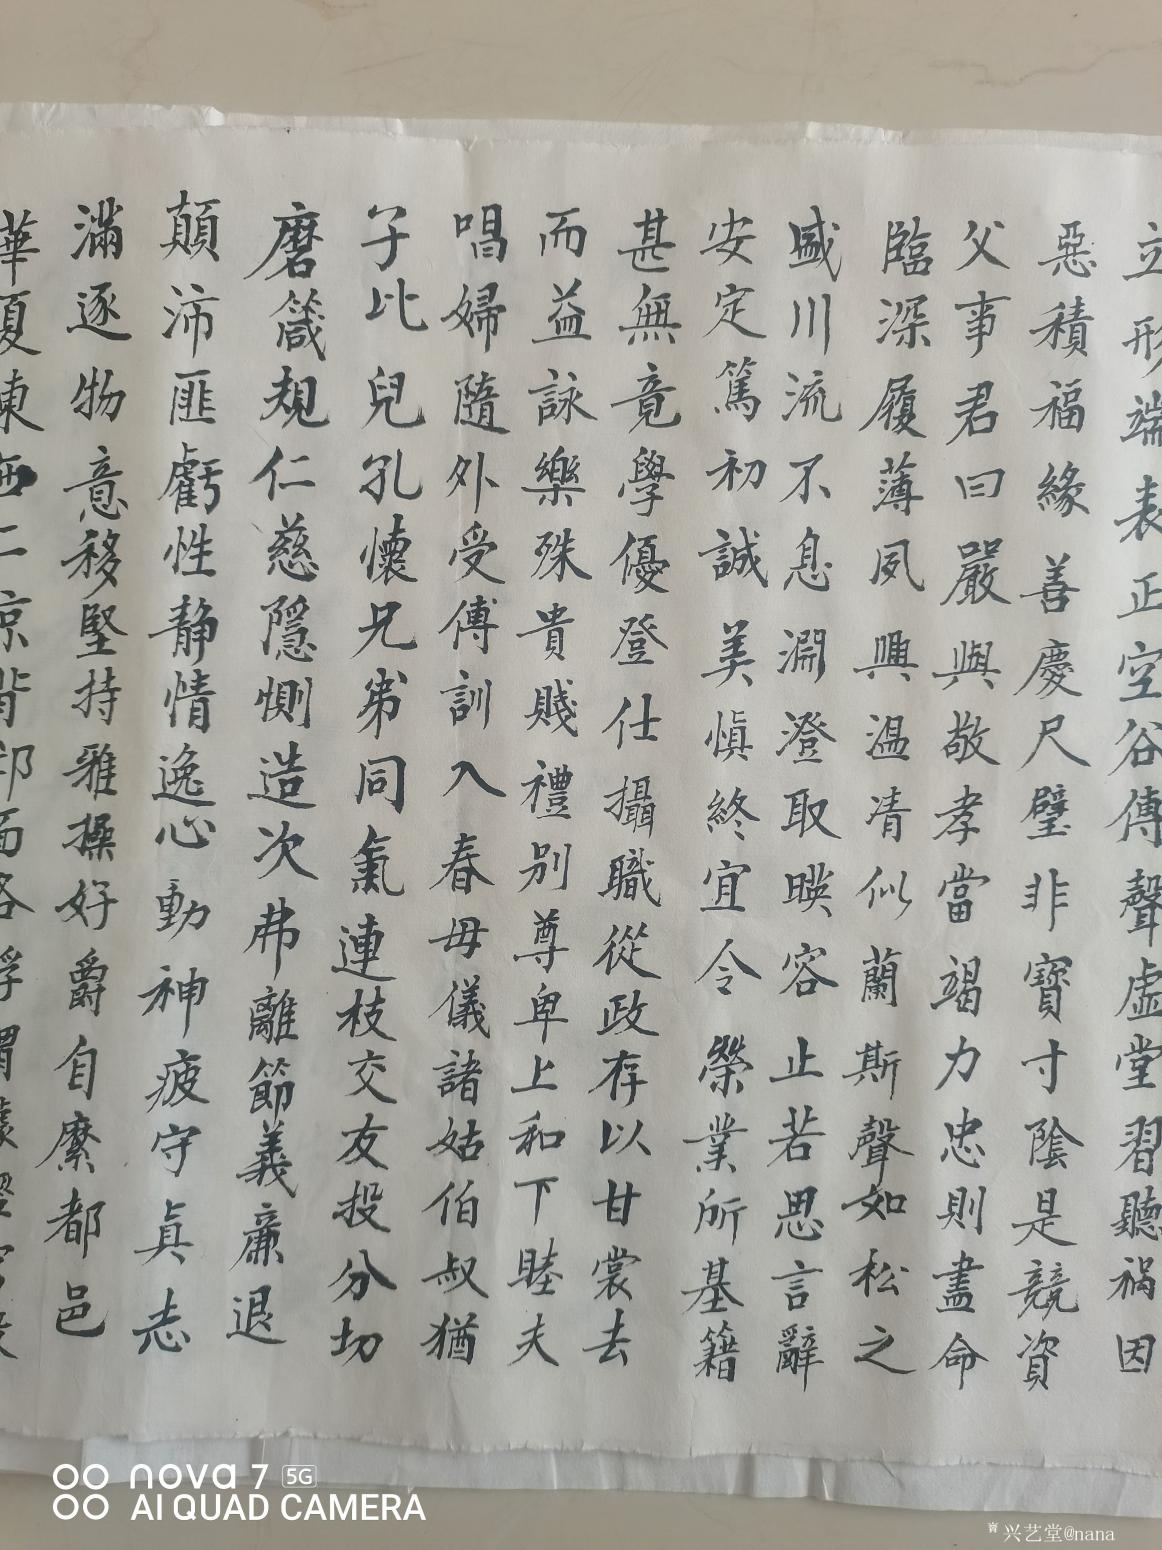 立形端表正空谷傳聲虛堂習聽禍因
惡積福緣善慶尺璧非寶寸陰是競資
父事君曰嚴與敬孝當竭力忠則盡命
臨深履薄夙興溫凊似蘭斯聲如松之
盛川流不息淵澄取暎容止若思言辭
安定篤初誠美慎終宜令榮業所基籍
甚無竟學優登仕攝職從政存以甘棠去
而益詠樂殊貴賤禮別尊卑上和下睦夫
唱婦隨外受傅訓入奉母儀諸姑伯叔猶
子比兒孔懷兄弟同氣連枝交友投分切
磨箴規仁慈隱惻造次弗離節義廉退
顛沛匪虧性静情逸心動神疲守真志
滿逐物意移堅持雅操好爵自縻都邑
華夏東西二京背邙面洛浮渭據
nova 7 5G
AI QUAD CAMERA
兴艺堂@nana